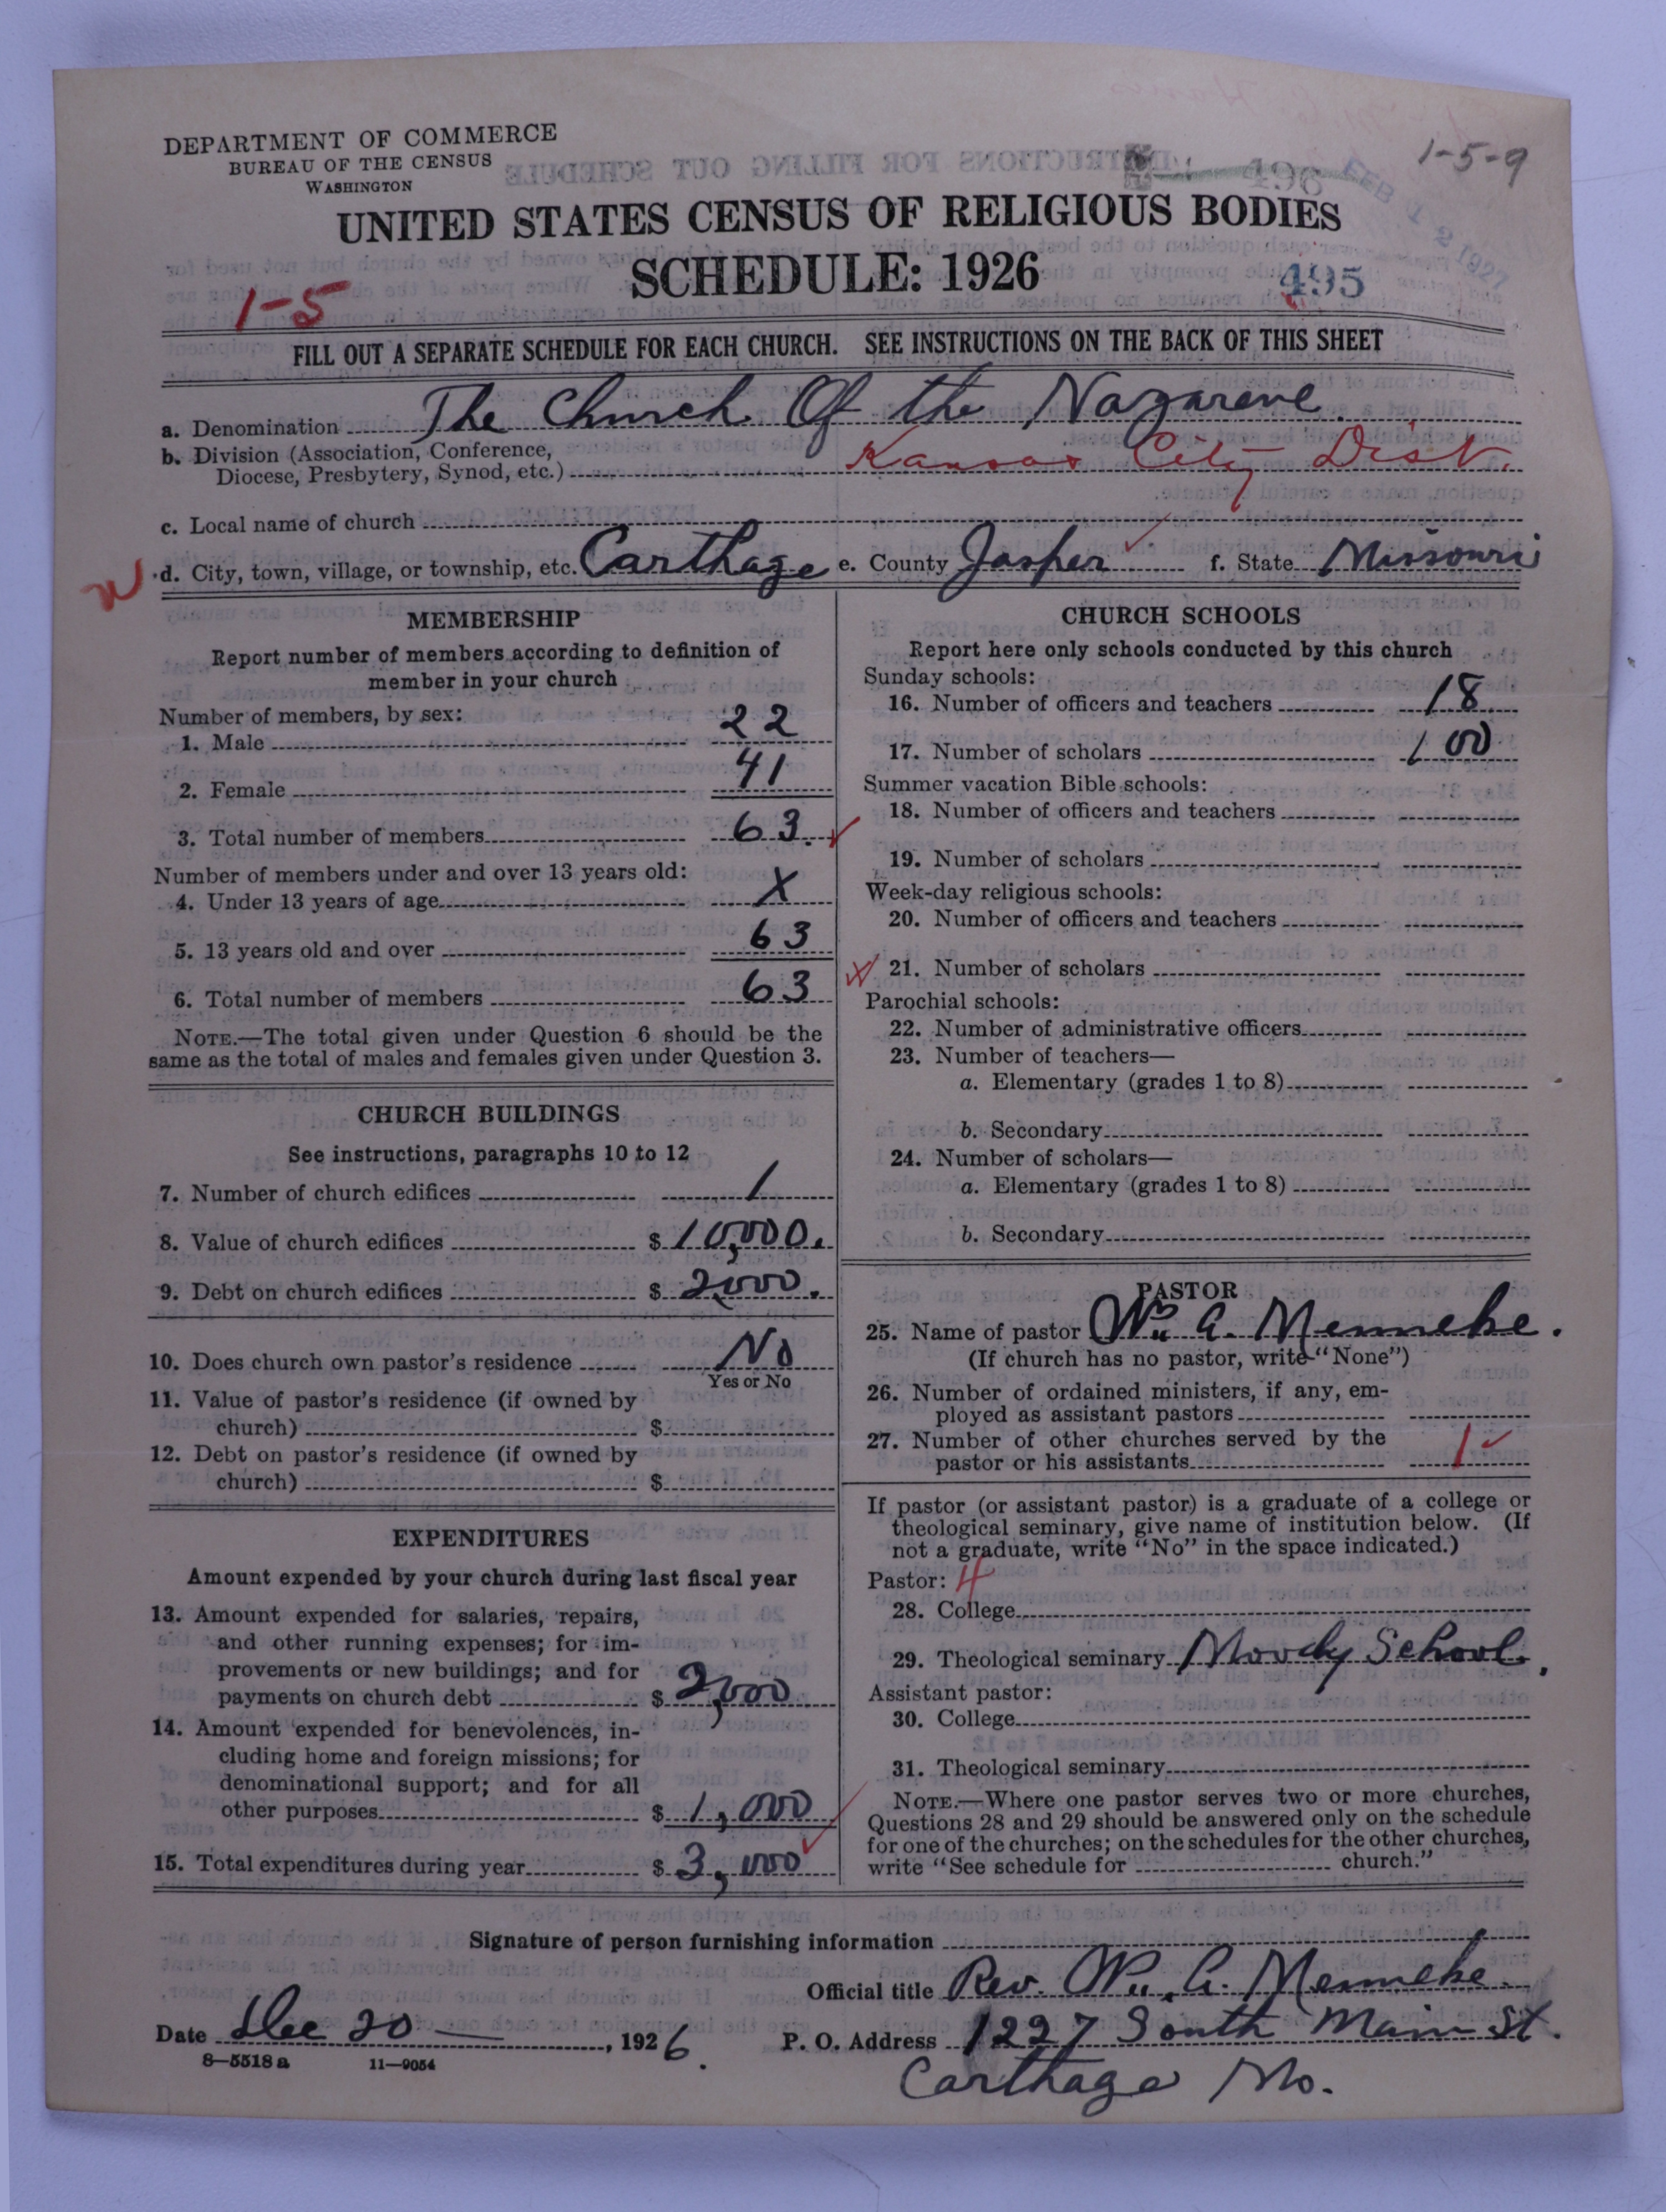 DEPARTMENT OF COMMERCE
BUREAU OF THE CENSUS
WASHINGTON
1-5-9
496
FEB 12 1927
UNITED STATES CENSUS OF RELIGIOUS BODIES
SCHEDULE: 1926
495
1-5
FILL OUT A SEPARATE SCHEDULE FOR EACH CHURCH. SEE INSTRUCTIONS ON THE BACK OF THIS SHEET
a. Denomination The Church Of the Nazarene
b. Division (Association, Conference,
Diocese, Presbytery, Synod, etc.) Kansas City Dist.
c. Local name of church
d. City, town, village, or township, etc. Carthage e. County Jasper f. State Missouri
MEMBERSHIP
Report number of members according to definition of
member in your church
Number of members, by sex:
1. Male 22
2. Female 41
3. Total number of members 63
Number of members under and over 13 years old:
4. Under 13 years of age X
5. 13 years old and over 63
6. Total number of members 63
NOTE.—The total given under Question 6 should be the
same as the total of males and females given under Question 3.
CHURCH BUILDINGS
See instructions, paragraphs 10 to 12
7. Number of church edifices 1
8. Value of church edifices $ 10,000.
9. Debt on church edifices $ 2,000.
10. Does church own pastor's residence No
Yes or No
11. Value of pastor's residence (if owned by
church) $
12. Debt on pastor's residence (if owned by
church) $
EXPENDITURES
Amount expended by your church during last fiscal year
13. Amount expended for salaries, repairs,
and other running expenses; for im-
provements or new buildings; and for
payments on church debt $ 2,000
14. Amount expended for benevolences, in-
cluding home and foreign missions; for
denominational support; and for all
other purposes $ 1,000
15. Total expenditures during year $ 3,000
CHURCH SCHOOLS
Report here only schools conducted by this church
Sunday schools:
16. Number of officers and teachers 18
17. Number of scholars 100
Summer vacation Bible schools:
18. Number of officers and teachers
19. Number of scholars
Week-day religious schools:
20. Number of officers and teachers
21. Number of scholars
Parochial schools:
22. Number of administrative officers
23. Number of teachers—
a. Elementary (grades 1 to 8)
b. Secondary
24. Number of scholars—
a. Elementary (grades 1 to 8)
b. Secondary
PASTOR
25. Name of pastor Wm. A. Menneke.
(If church has no pastor, write "None")
26. Number of ordained ministers, if any, em-
ployed as assistant pastors
27. Number of other churches served by the
pastor or his assistants 1
If pastor (or assistant pastor) is a graduate of a college or
theological seminary, give name of institution below. (If
not a graduate, write "No" in the space indicated.)
Pastor: 4
28. College
29. Theological seminary Moody School.
Assistant pastor:
30. College
31. Theological seminary
NOTE.—Where one pastor serves two or more churches,
Questions 28 and 29 should be answered only on the schedule
for one of the churches; on the schedules for the other churches,
write "See schedule for church."
Signature of person furnishing information
Official title Rev. Wm. A. Menneke
Date Dec 20 —, 1926. P. O. Address 1227 South Main St.
8—5518a 11—9054
Carthage Mo.